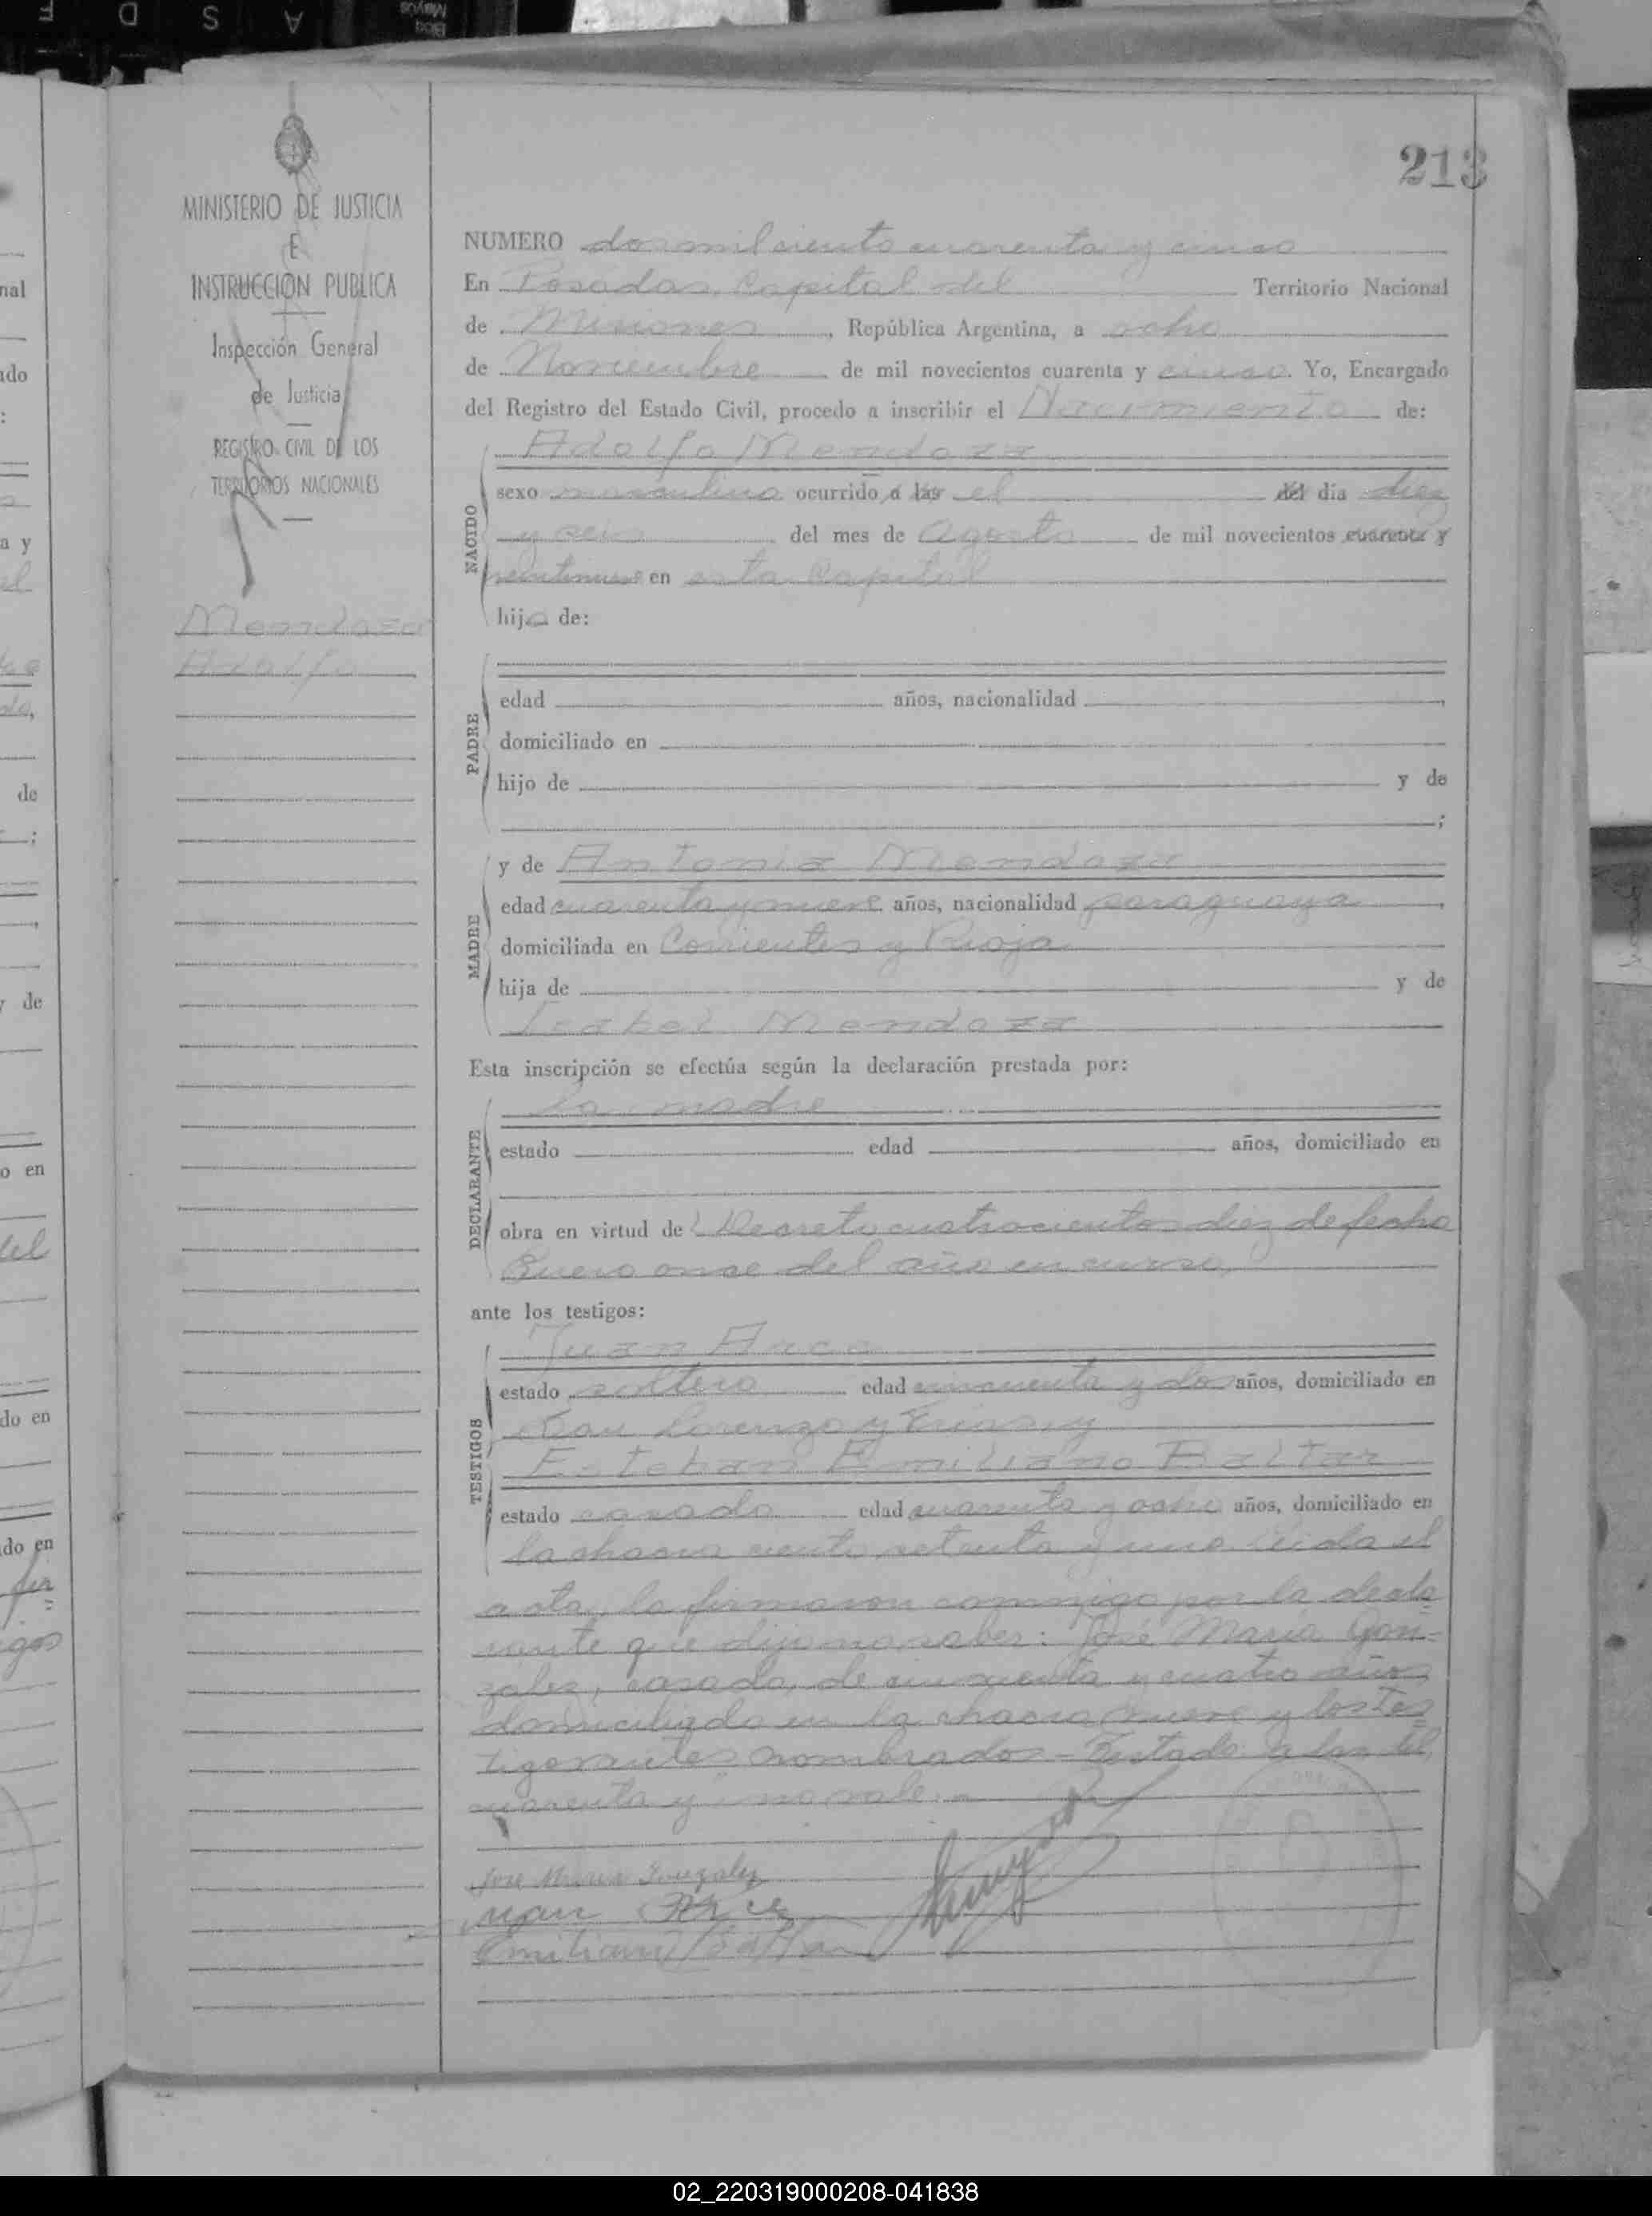 213
MINISTERIO DE JUSTICIA
E
INSTRUCCION PUBLICA
Inspección General
de Justicia
REGISTRO CIVIL DE LOS
TERRITORIOS NACIONALES
Mendoza
Adolfo
NUMERO dos mil ciento cuarenta y cinco
En Posadas, Capital del Territorio Nacional
de Misiones, República Argentina, a ocho
de Noviembre de mil novecientos cuarenta y cinco. Yo, Encargado
del Registro del Estado Civil, procedo a inscribir el Nacimiento de:
NACIDO
Adolfo Mendoza
sexo masculino ocurrido a las el del día diez
y seis del mes de Agosto de mil novecientos cuarenta y
veintinueve en esta Capital
hijo de:
PADRE
edad años, nacionalidad ,
domiciliado en
hijo de y de
;
MADRE
y de Antonia Mendoza
edad cuarenta y nueve años, nacionalidad paraguaya ,
domiciliada en Corrientes y Rioja
hija de y de
Isabel Mendoza
Esta inscripción se efectúa según la declaración prestada por:
DECLARANTE
La madre
estado edad años, domiciliado en
obra en virtud de Decreto cuatrocientos diez de fecha
Enero once del año en curso,
ante los testigos:
TESTIGOS
Juan Arce
estado soltero edad cincuenta y dos años, domiciliado en
San Lorenzo y
Esteban Emiliano Baltar
estado casado edad cuarenta y ocho años, domiciliado en
la chacra ciento setenta y uno. Leida el
acta, la firmaron conmigo por la decla
rante que dijo no saber: José María Gon=
zalez, casado, de cincuenta y cuatro años,
domiciliado en la chacra nueve y los Tes
tigos antes nombrados - Testado: a las
cuarenta y : no vale. -
Jose Maria Gonzalez
Juan Arce
Emiliano Baltar
02_220319000208-041838